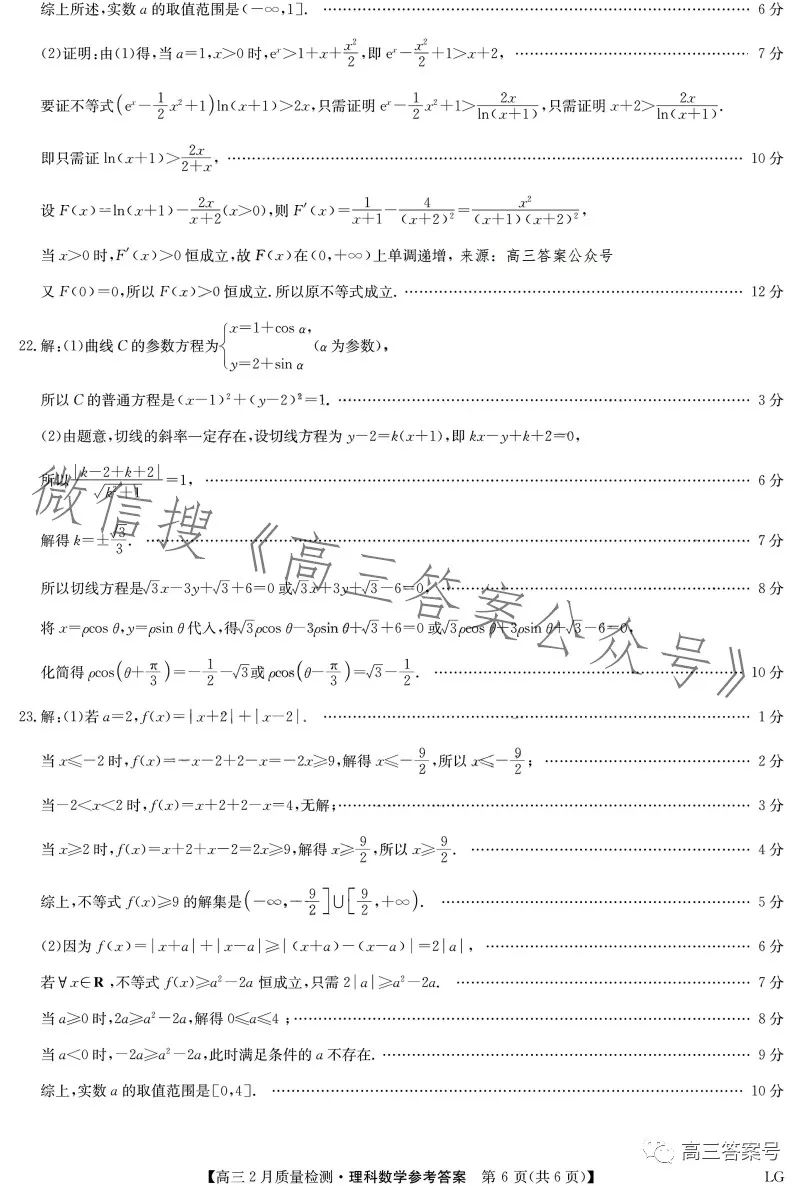 综上所述,实数 a 的取值范围是(-∞,1]. …… 6 分
(2)证明:由(1)得,当 a=1,x>0 时,eˣ>1+x+x²/2,即 eˣ-x²/2+1>x+2, …… 7 分
要证不等式(eˣ-1/2 x²+1)ln(x+1)>2x,只需证明 eˣ-1/2 x²+1>2x/ln(x+1),只需证明 x+2>2x/ln(x+1).
即只需证 ln(x+1)>2x/(2+x), …… 10 分
设 F(x)=ln(x+1)-2x/(x+2)(x>0),则 F′(x)=1/(x+1)-4/(x+2)²=x²/((x+1)(x+2)²),
当 x>0 时,F′(x)>0 恒成立,故 F(x)在(0,+∞)上单调递增, 来源: 高三答案公众号
又 F(0)=0,所以 F(x)>0 恒成立.所以原不等式成立. …… 12 分
22.解:(1)曲线 C 的参数方程为{x=1+cos α, y=2+sin α (α 为参数),
所以 C 的普通方程是(x-1)²+(y-2)²=1. …… 3 分
(2)由题意,切线的斜率一定存在,设切线方程为 y-2=k(x+1),即 kx-y+k+2=0,
所以|k-2+k+2|/√(k²+1)=1, …… 6 分
解得 k=±√3/3. …… 7 分
所以切线方程是√3x-3y+√3+6=0 或√3x+3y+√3-6=0, …… 8 分
将 x=ρcos θ,y=ρsin θ 代入,得√3ρcos θ-3ρsin θ+√3+6=0 或√3ρcos θ+3ρsin θ+√3-6=0,
化简得 ρcos(θ+π/3)=-1/2-√3或 ρcos(θ-π/3)=√3-1/2. …… 10 分
23.解:(1)若 a=2,f(x)=|x+2|+|x-2|. …… 1 分
当 x≤-2 时,f(x)=-x-2+2-x=-2x≥9,解得 x≤-9/2,所以 x≤-9/2; …… 2 分
当-2<x<2 时,f(x)=x+2+2-x=4,无解; …… 3 分
当 x≥2 时,f(x)=x+2+x-2=2x≥9,解得 x≥9/2,所以 x≥9/2. …… 4 分
综上,不等式 f(x)≥9 的解集是(-∞,-9/2]∪[9/2,+∞). …… 5 分
(2)因为 f(x)=|x+a|+|x-a|≥|(x+a)-(x-a)|=2|a|, …… 6 分
若∀x∈R,不等式 f(x)≥a²-2a 恒成立,只需 2|a|≥a²-2a. …… 7 分
当 a≥0 时,2a≥a²-2a,解得 0≤a≤4; …… 8 分
当 a<0 时,-2a≥a²-2a,此时满足条件的 a 不存在. …… 9 分
综上,实数 a 的取值范围是[0,4]. …… 10 分
微信搜《高三答案公众号》
高三答案号
【高三 2 月质量检测·理科数学参考答案 第 6 页(共 6 页)】 LG